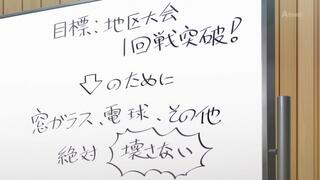 目標:地区大会
1回戦突破!
⇩のために
窓ガラス、電球、その他
絶対 壊さない